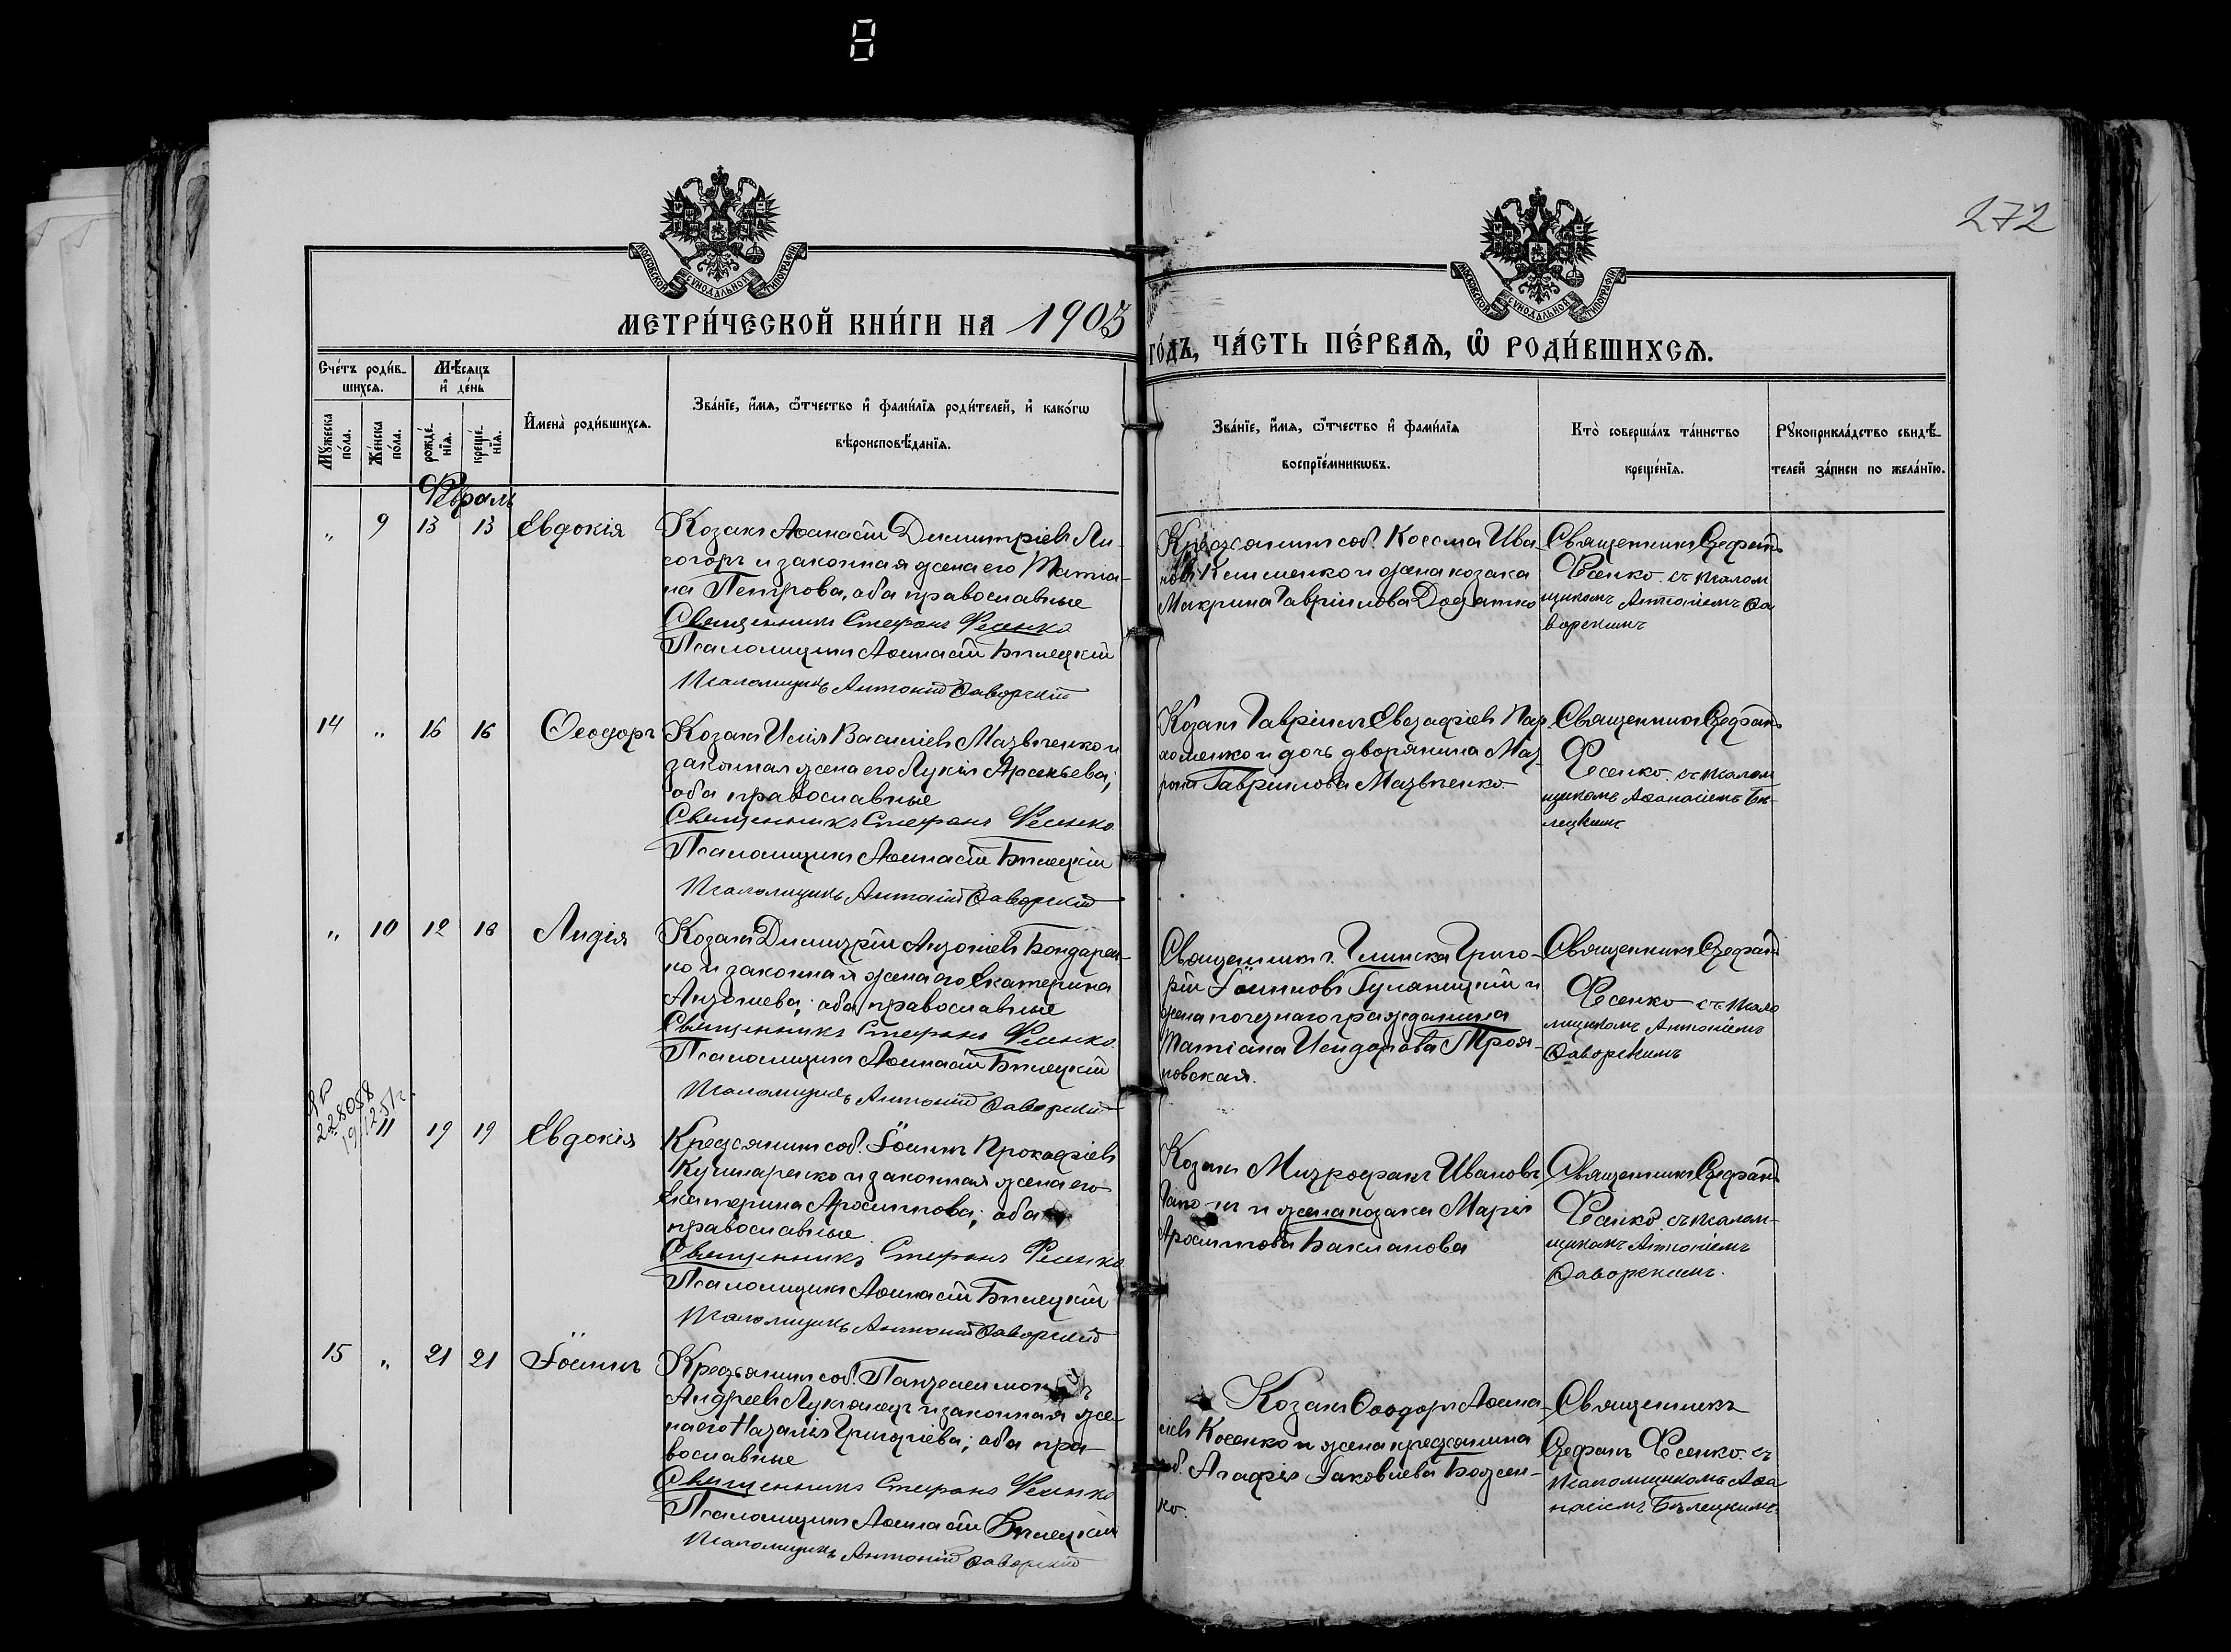 272
МОСКОВСКОЙ СУНОДАЛЬНОЙ ТИПОГРАФІИ
МОСКОВСКОЙ СУНОДАЛЬНОЙ ТИПОГРАФІИ
МЕТРИ́ЧЕСКОЙ КНИ́ГИ НА 1903
ГО́ДЪ, ЧА́СТЬ ПЕ́РВАѦ, Ѿ РОДИ́ВШИХСѦ.
Сче́тъ роди́в-
шихсѧ.
Мѣ́сѧцъ
и҆ де́нь
Мꙋ́жеска
по́ла.
Же́нска
по́ла.
рожде́-
нїѧ.
креще́-
нїѧ.
И҆мена̀ роди́вшихсѧ.
Зва́нїе, и҆́мѧ, ѻ҆́тчество и҆ фами́лїѧ роди́телей, и҆ како́гѡ
вѣроисповѣ́данїѧ.
Зва́нїе, и҆́мѧ, ѻ҆́тчество и҆ фами́лїѧ
воспрїе́мникѡвъ.
Кто̀ соверша́лъ та́инство
креще́нїѧ.
Рꙋкоприкла́дство свидѣ́-
телей за́писи по жела́нїю.
Февраль
„ 9 13 13 Евдокія
Козакъ Аѳанасій Димитріевъ Ли-
согоръ и законная жена его Татiа-
на Петрова, оба православные
Священникъ Стефанъ Фесенко
Псаломщикъ Аѳанасій Бѣлецкій
Псаломщикъ Антоній Заворскій
Крестьянинъ соб. Косма Ива-
новъ Клименко и жена козака
Макрина Гавріилова
Священникъ Стефанъ
Фесенко съ псалом
щикомъ Антоніемъ За
ворскимъ
14 „ 16 16 Ѳеодоръ
Козакъ Илія Василіевъ и
законная жена его Лукія Арсеньева;
оба православные
Священникъ Стефанъ Фесенко
Псаломщикъ Аѳанасій Бѣлецкій
Псаломщикъ Антоній Заворскій
Козакъ Гавріилъ Евстафіевъ Пар
хоменко и дочь дворянина
Гавріилова
Священникъ Стефанъ
Фесенко съ псалом
щикомъ Аѳанасіемъ Бѣ-
лецкимъ
„ 10 12 16 Лидія
Козакъ Димитрій Антоніевъ Бондарен-
ко и законная жена его Екатерина
Антоніева; оба православные
Священникъ Стефанъ Фесенко
Псаломщикъ Аѳанасій Бѣлецкій
Псаломщикъ Антоній Заворскій
Священникъ г. Глинска Григо-
рій Іоанновъ и
жена почетнаго гражданина
Татіана Исидорова Троя-
новская.
Священникъ Стефанъ
Фесенко съ псало
мщикомъ Антоніемъ
Заворскимъ
228058
19/12 51 г.
11 19 19 Евдокія
Крестьянинъ соб. Іоаннъ Прокофіевъ
Кушнаренко и законная жена его
Екатерина; оба
православные
Священникъ Стефанъ Фесенко
Псаломщикъ Аѳанасій Бѣлецкій
Псаломщикъ Антоній Заворскій
Козакъ Митрофанъ Ивановъ
и жена козака Марія
Бакланова
Священникъ Стефанъ
Фесенко съ псалом-
щикомъ Антоніемъ
Заворскимъ.
15 „ 21 21 Іоаннъ
Крестьянинъ соб. Пантелеимонъ
Андреевъ и законная же-
на его Наталія Григоріева; оба пра-
вославные
Священникъ Стефанъ Фесенко
Псаломщикъ Аѳанасій Бѣлецкій
Псаломщикъ Антоній Заворскій
Козакъ Ѳеодоръ Аѳана-
сіевъ Косенко и жена крестьянина
соб. Агафія Іаковлева Божен-
ко.
Священникъ
Стефанъ Фесенко съ
псаломщикомъ Аѳа
насіемъ Бѣлецкимъ.